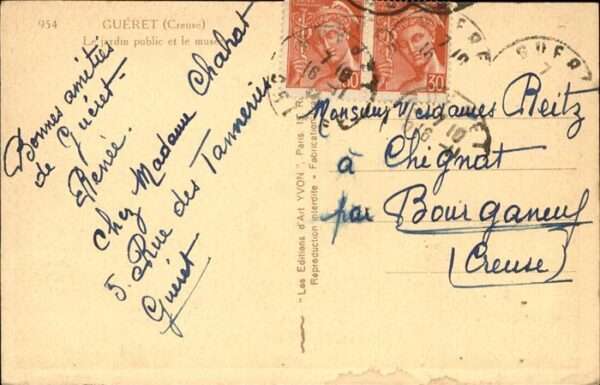 954 GUÉRET (Creuse)
Le jardin public et le musée
Bonnes amitiés
de Guéret-
Renée.
Chez Madame Chabat
5. Rue des Tanneries
Guéret
"Les Editions d'Art YVON", Paris
Reproduction interdite - Fabrication
30
GUERET
Monsieur Mesdames Reitz
à Chignat
par Bourganeuf
(Creuse)